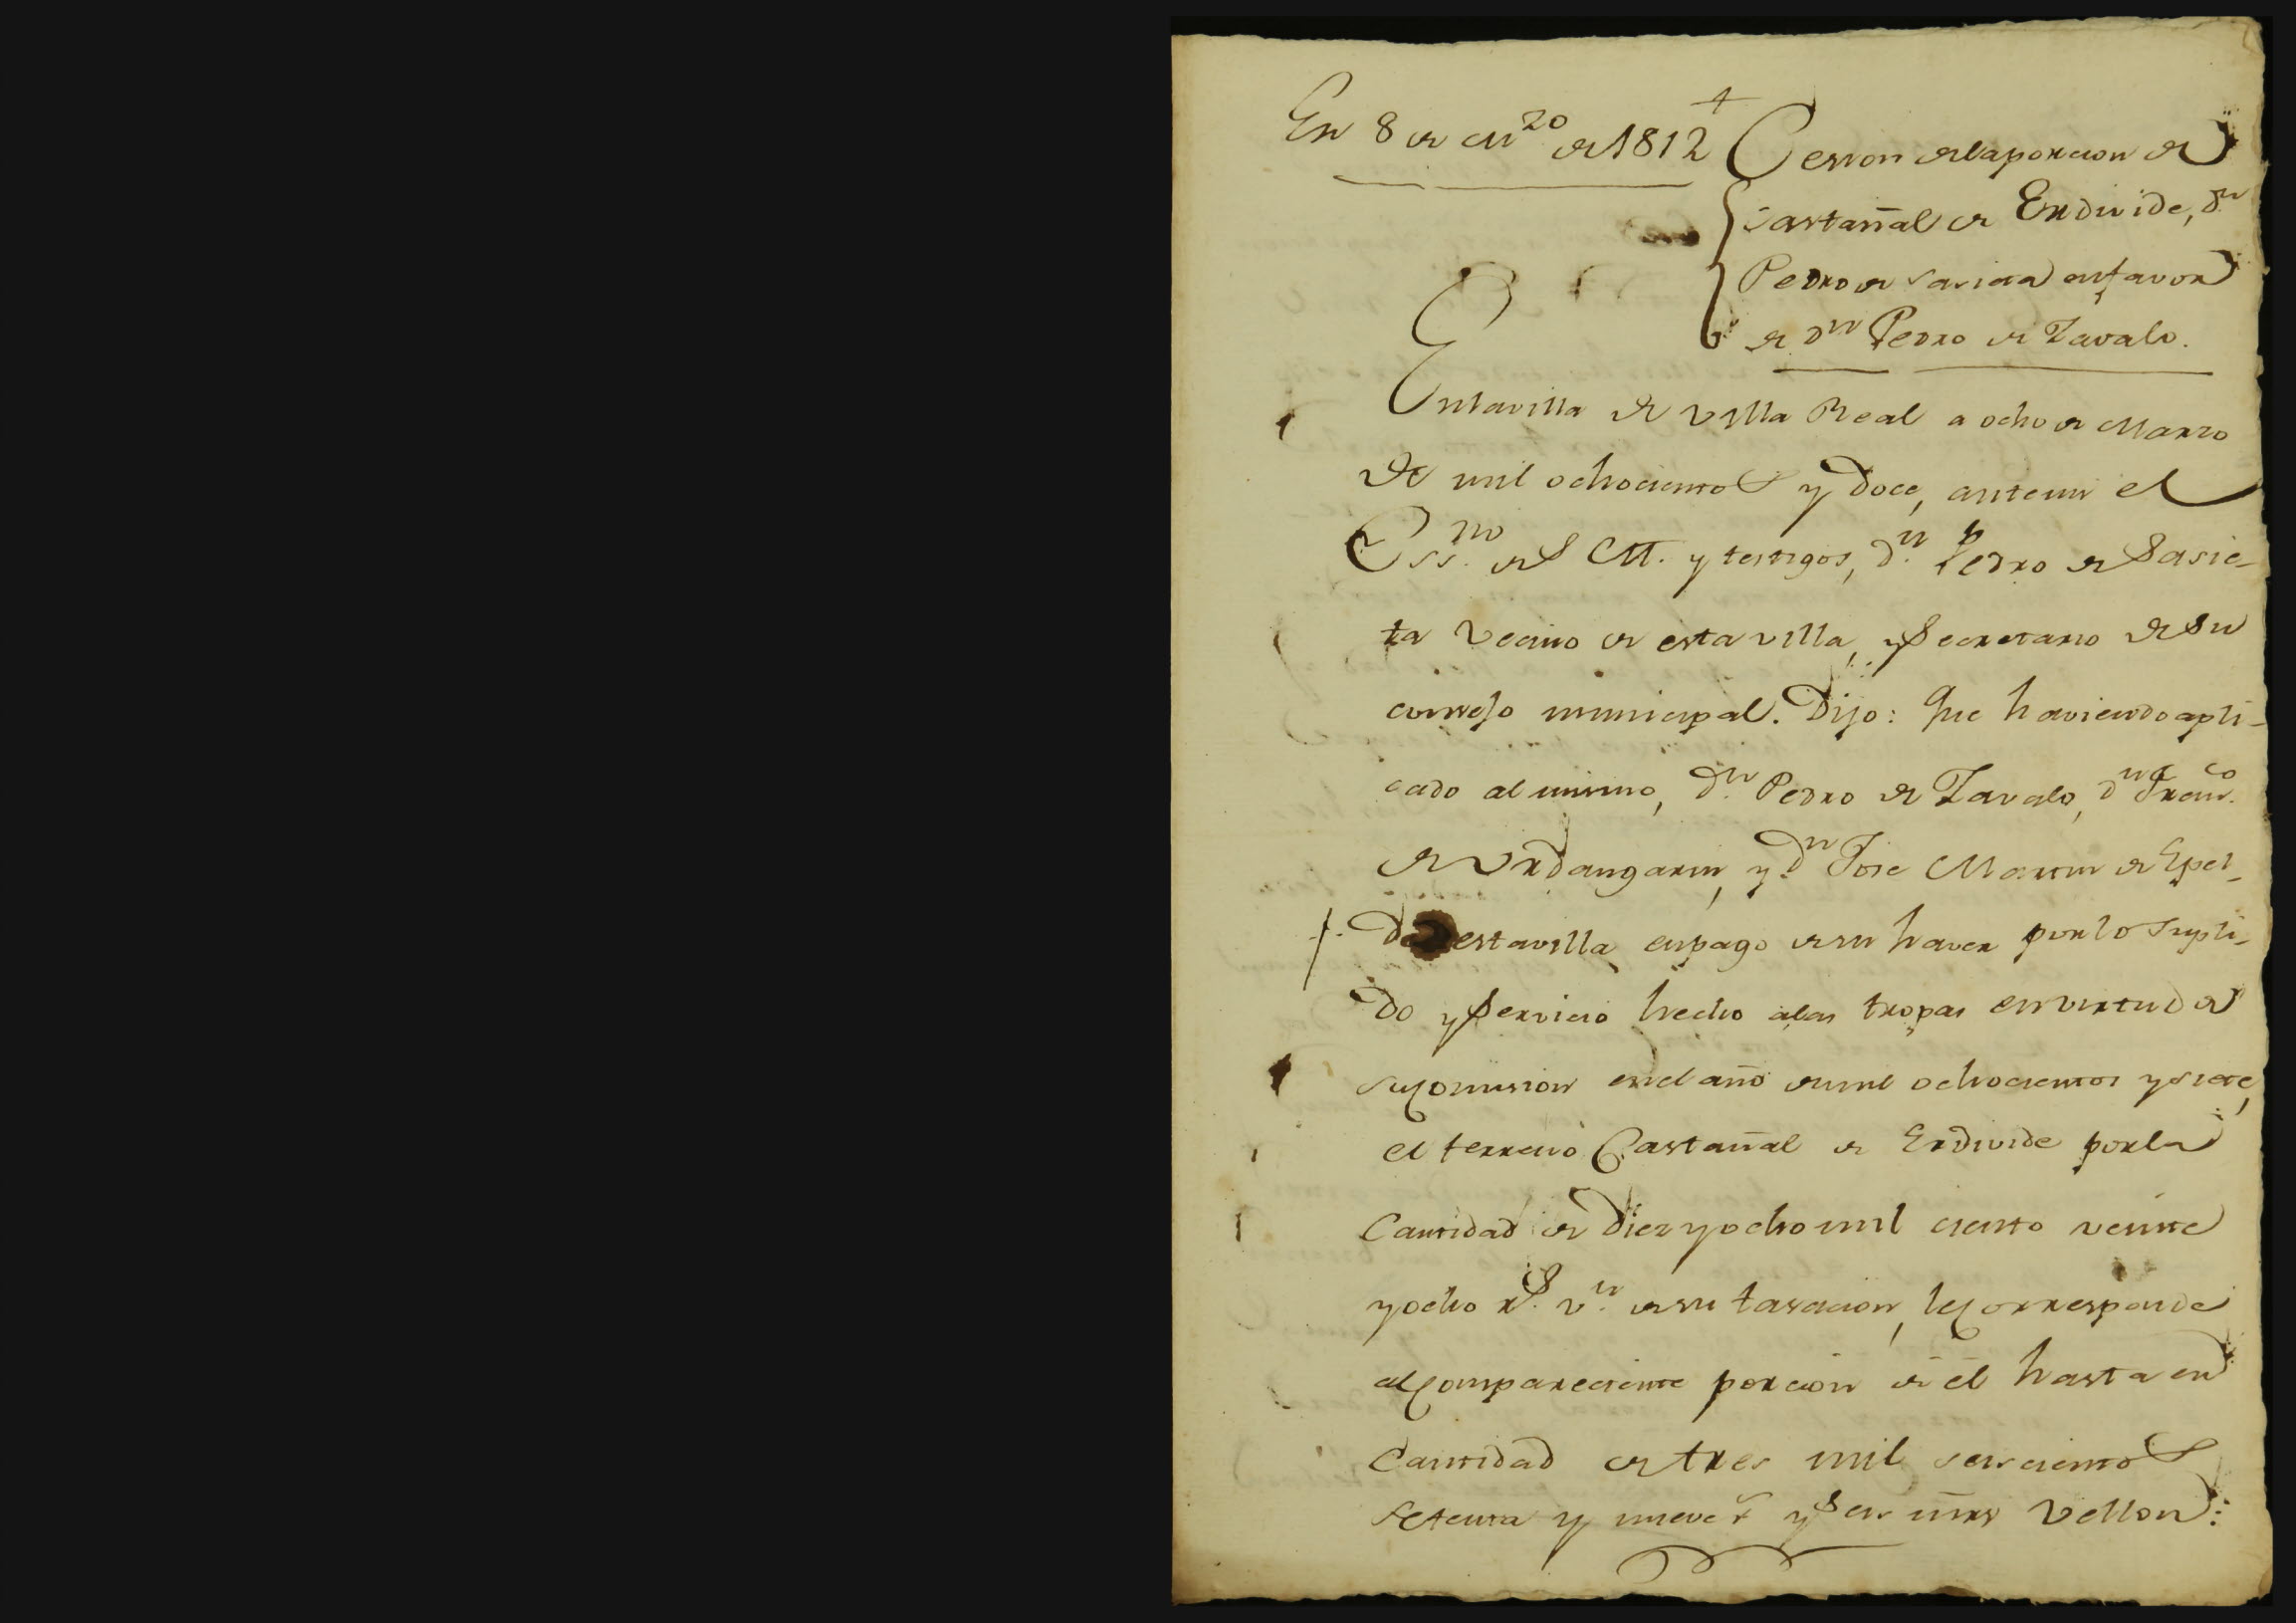 En 8 de M.zo de 1812
Cesion dela porcion de
castañal de Erdivide, dn
Pedro de Sasieta en favor
de dn Pedro de Zavalo.
Enlavilla de Villa Real a ocho de Marzo
de mil ochocientos y doce, antemi el
Ess.no de S M. y testigos, d.n Pedro de Sasie-
ta Vecino de esta villa, y Secretario de su
consejo municipal. Dijo: Que haviendo apli-
cado al mismo, d.n Pedro de Zavalo, dn Fran.co
de Urdangarin, y dn Jose Martin de Epel-
de de estavilla en pago de su haver por lo supli-
do y Servicio hecho alas tropas en virtud de
su comision en el año de mil ochocientos y siete,
el terreno Castañal de Erdivide por la
Cantidad de Diez y ocho mil ciento veinte
y ocho r.s v.n de su tasacion, le corresponde
al compareciente porcion de el hasta en
Cantidad de tres mil seiscientos
setenta y nueve r.s y seis mrs Vellon: